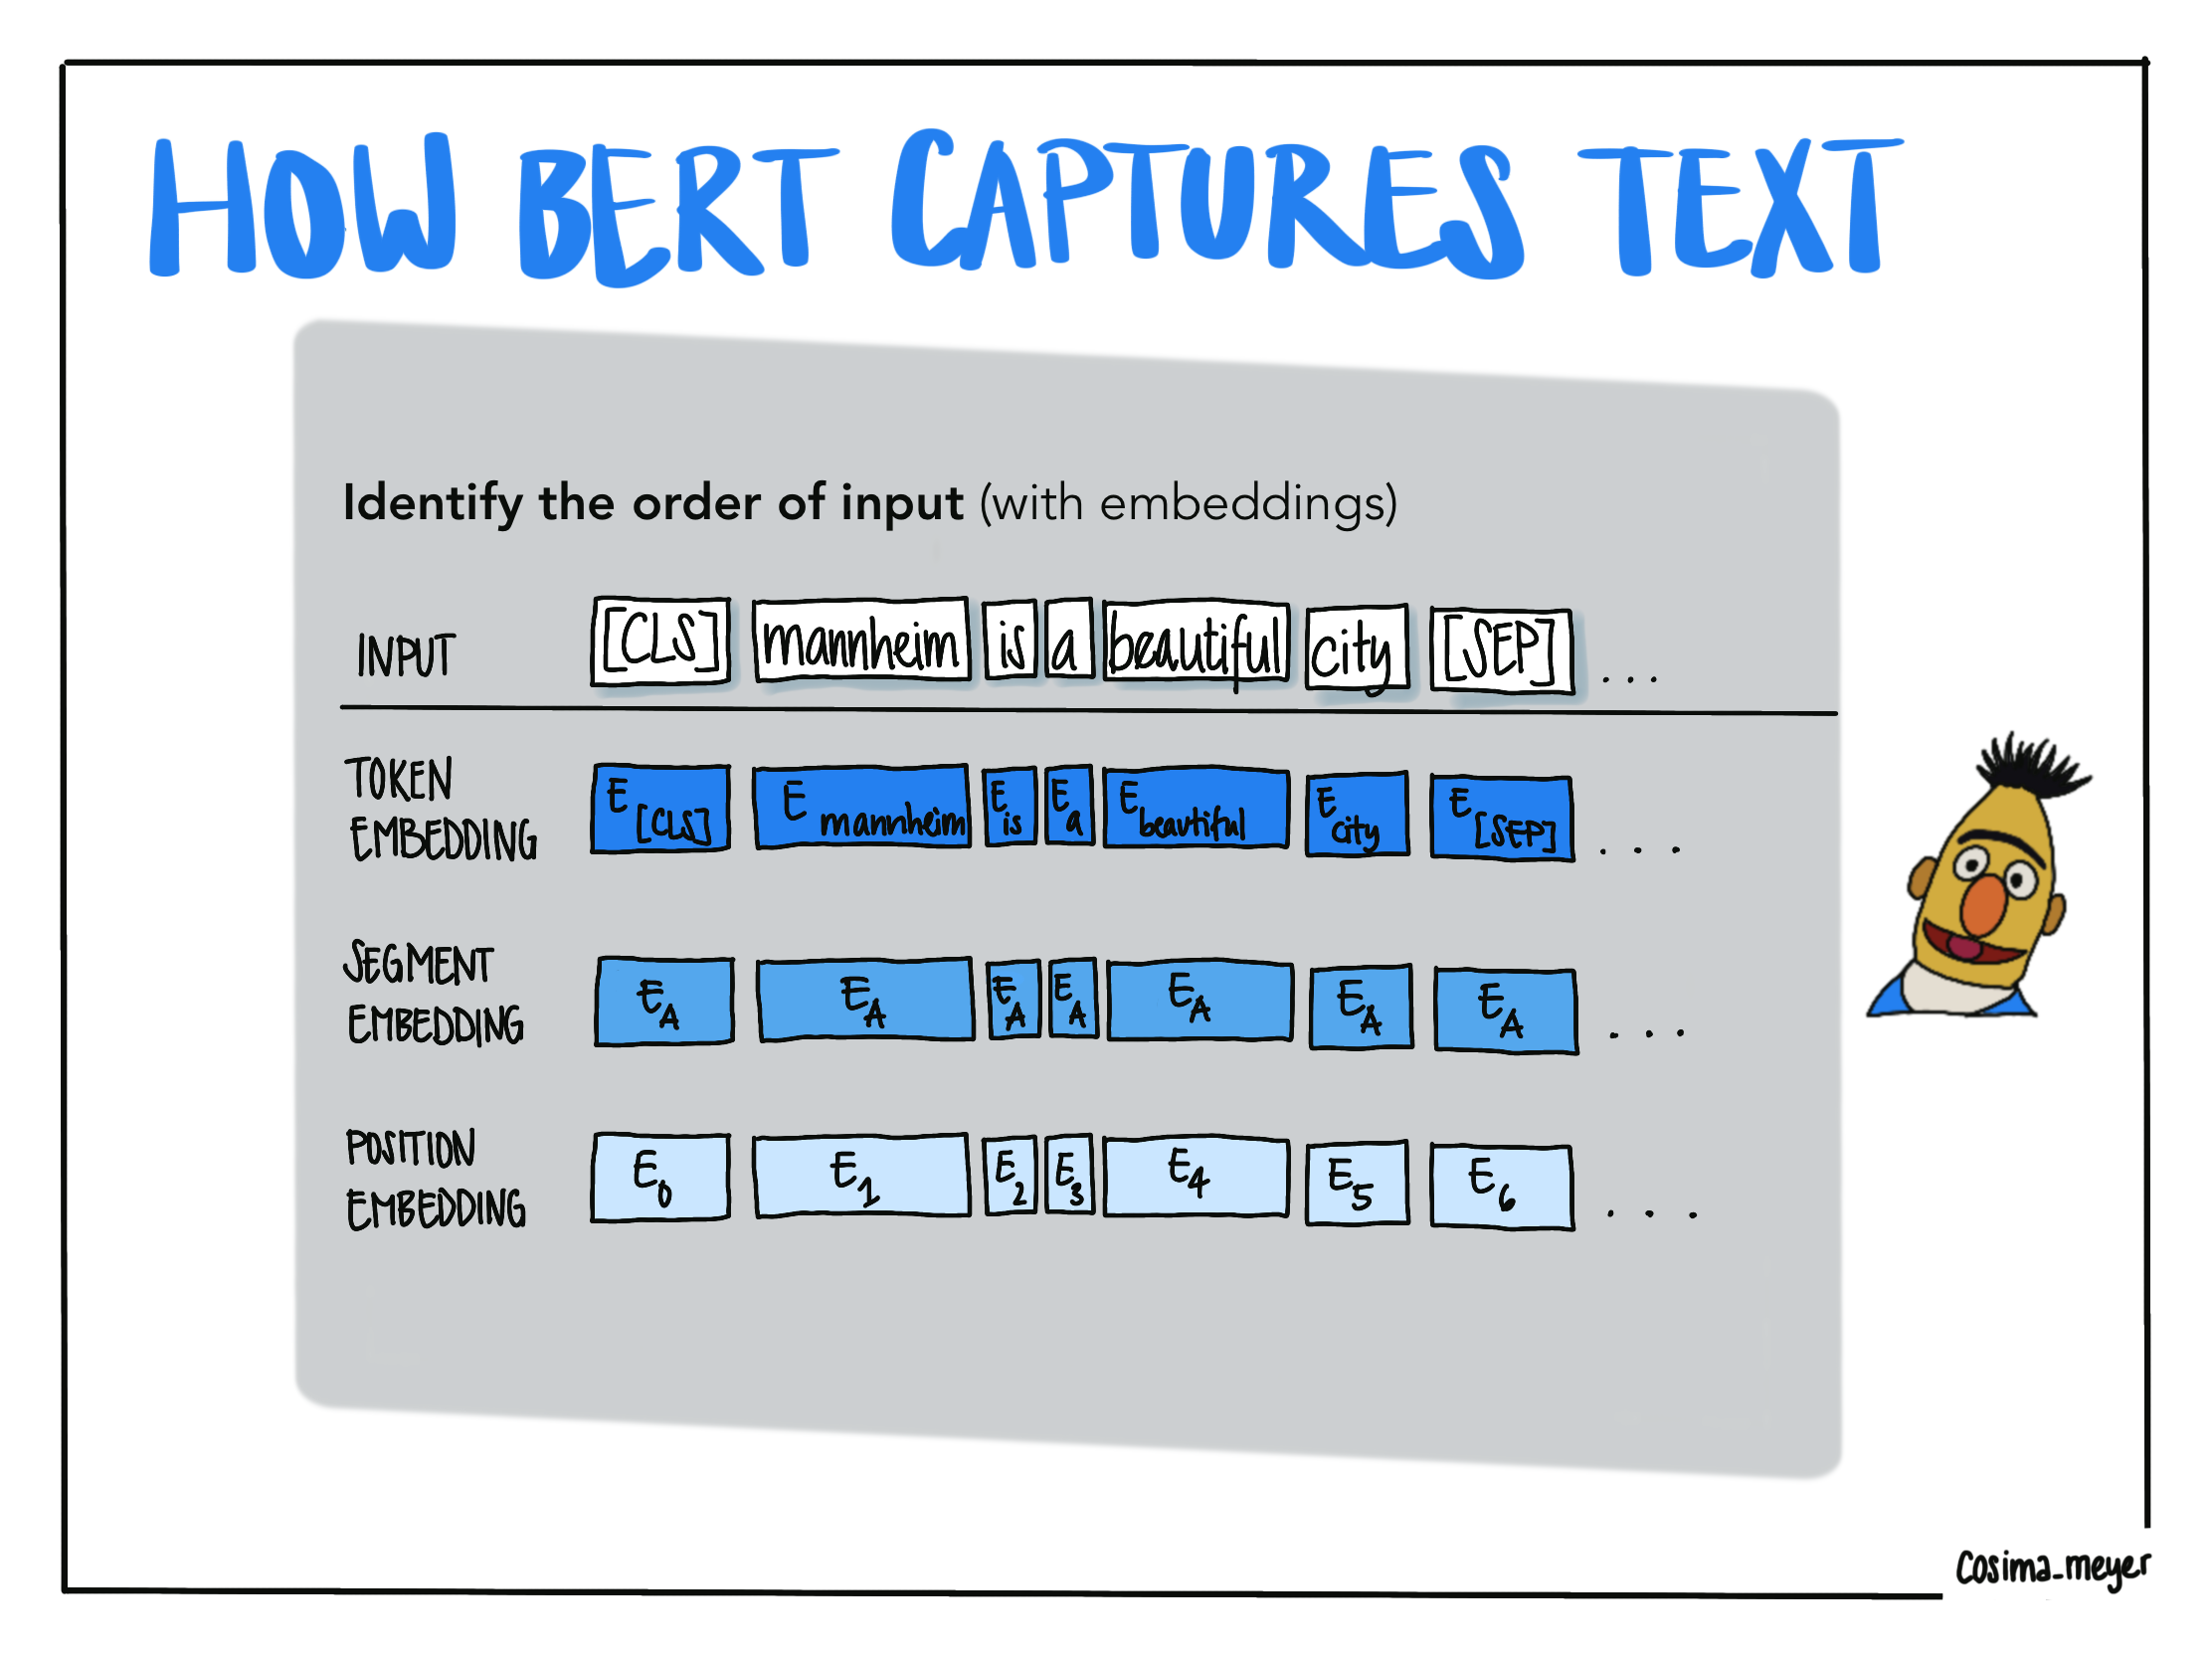 HOW BERT CAPTURES TEXT
Identify the order of input (with embeddings)
INPUT [CLS] mannheim is a beautiful city [SEP] ...
TOKEN
EMBEDDING E[CLS] Emannheim Eis Ea Ebeautiful Ecity E[SEP] ...
SEGMENT
EMBEDDING EA EA EA EA EA EA EA ...
POSITION
EMBEDDING E0 E1 E2 E3 E4 E5 E6 ...
cosima_meyer